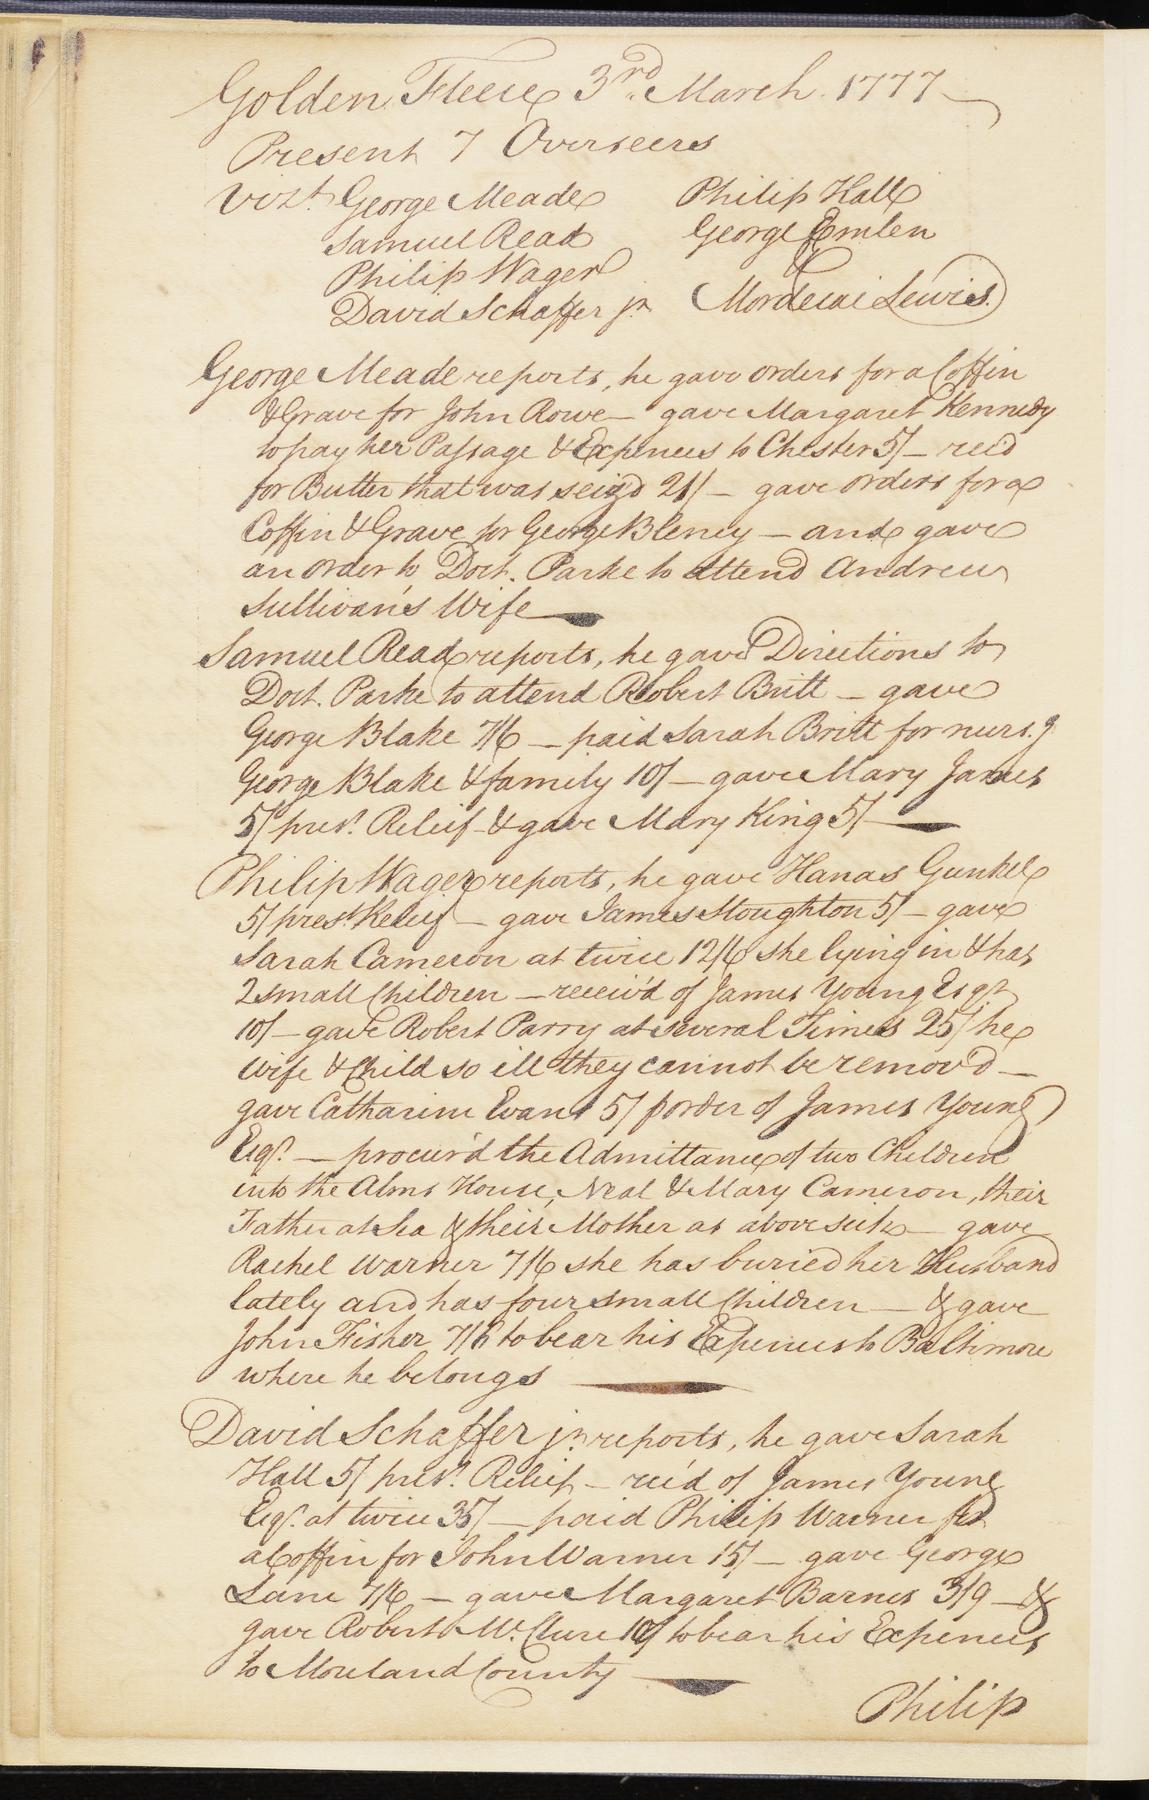 Golden Fleece 3rd. March 1777
Present 7 Overseers
Vizt. George Meade Philip Hall
Samuel Read George Emlen
Philip Wager &
David Schaffer jr. Mordecai Lewis.
George Meade reports, he gave orders for a Coffin
& Grave for John Rowe — gave Margaret Kennedy
to pay her Passage & Expences to Chester 5/ — rec'd
for Butter that was seiz'd 21/ — gave orders for a
Coffin & Grave for George Bleney — and gave
an order to Doct. Parke to attend Andrew
Sullivan's Wife —
Samuel Read reports, he gave Directions to
Doct. Parke to attend Robert Britt — gave
George Blake 7/6 — paid Sarah Britt for nurs.g
George Blake & family 10/ — gave Mary James
5/ prest. Releif & gave Mary King 5/ —
Philip Wager reports, he gave Hanas Gunkel
5/ prest. Releif — gave James Stoughton 5/ — gave
Sarah Cameron at twice 12/6 she lying in & has
2 small Children — receiv'd of James Young Esqr
10/ — gave Robert Parry at several Times 25/ he
Wife & Child so ill they cannot be remov'd —
gave Catharine Evans 5/ p order of James Young
Esqr. — procur'd the Admittance of two Children
into the Alms House, Neal & Mary Cameron, their
Father at Sea & their Mother as above sick — gave
Rachel Warner 7/6 she has buried her Husband
lately and has four small Children — & gave
John Fisher 7/6 to bear his Expences to Baltimore
where he belongs —
David Schaffer jr. reports, he gave Sarah
Hall 5/ prest. Relief — rec'd of James Young
Esqr. at twice 35/ — paid Philip Warner for
a Coffin for John Warner 15/ — gave George
Lane 7/6 — gave Margaret Barnes 3/9 — &
gave Robert Mc.Clure 10/ to bear his Expences
to Moreland County —
Philip